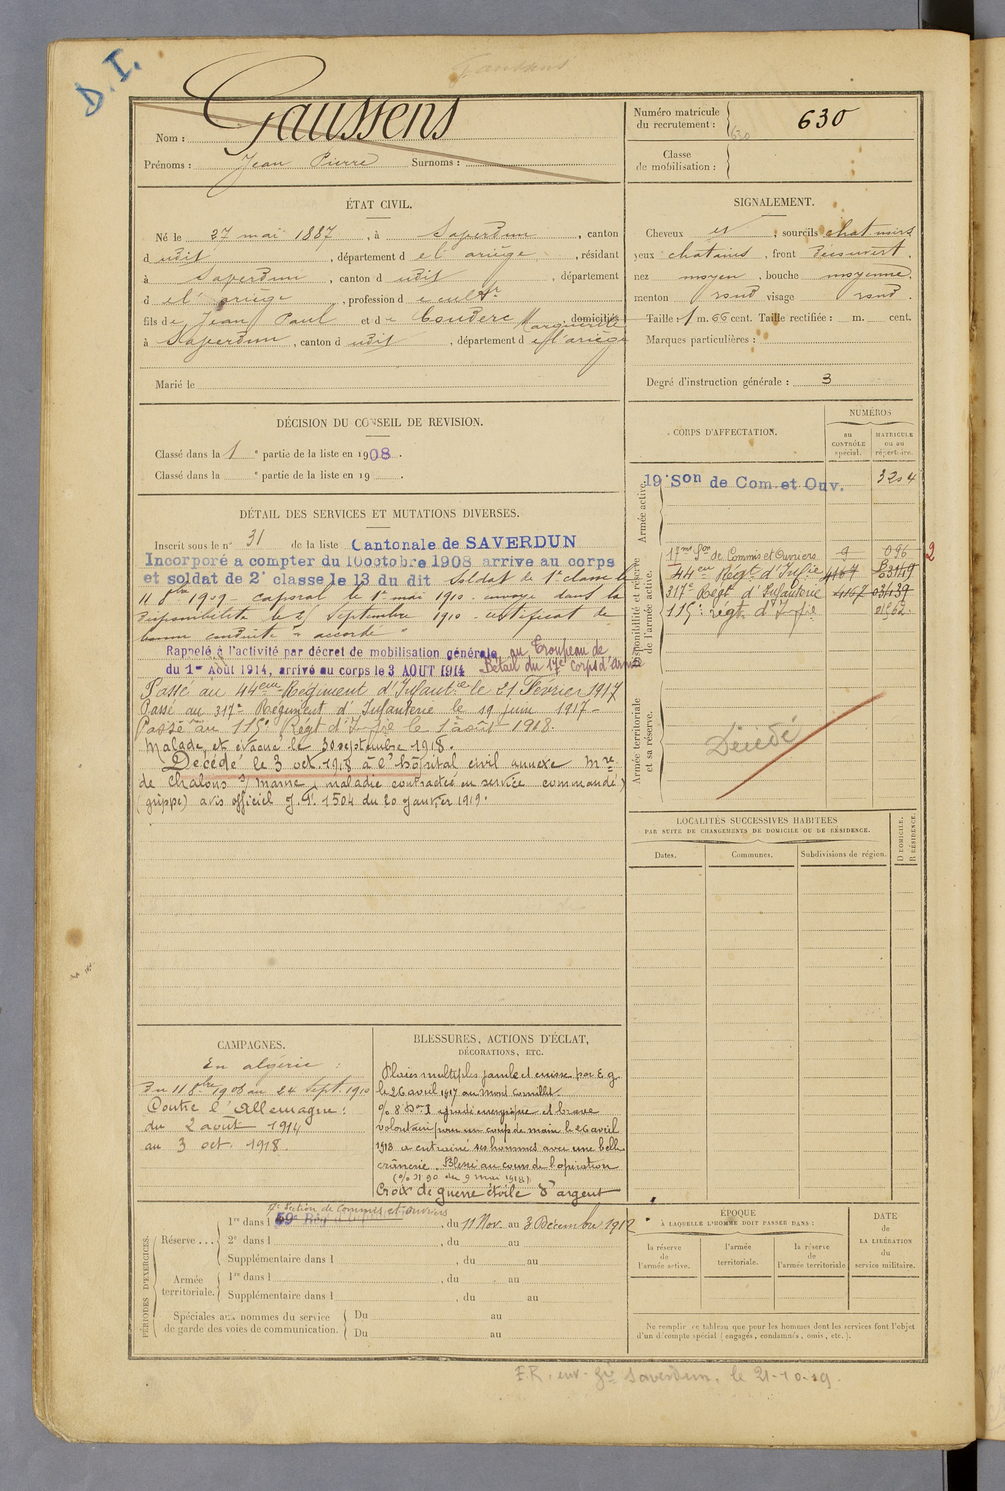 D. I.
Gaussens
Nom : Gaussens
Prénoms : Jean Pierre Surnoms :
Numéro matricule du recrutement : 630
630
Classe de mobilisation :
ÉTAT CIVIL.
Né le 27 mai 1887, à Saverdun, canton
d udit, département d e l'ariège, résidant
à Saverdun, canton d udit, département
d e l'ariège, profession d e cultr
fils de Jean Paul et de Couderc Marguerite domiciliés
à Saverdun, canton d udit, département d e l'ariège
Marié le
SIGNALEMENT.
Cheveux et ; sourcils chat noirs
yeux chatains, front découvert,
nez moyen, bouche moyenne,
menton rond visage rond.
Taille : 1 m. 66 cent. Taille rectifiée : m. cent.
Marques particulières :
Degré d'instruction générale : 3
DÉCISION DU CONSEIL DE REVISION.
Classé dans la 1e partie de la liste en 1908.
Classé dans la e partie de la liste en 19 .
CORPS D'AFFECTATION.
NUMÉROS
au CONTRÔLE spécial.
MATRICULE ou au répertoire.
Armée active.
19e Son de Com. et Ouv. 3204
Disponibilité et réserve de l'armée active.
17me Son de Commis et Ouvriers 9 096 2
44eu Régt d'Infie 4167
317e Régt d'Infanterie 4167
115e régt d'Infie
Armée territoriale et sa réserve.
Décédé
DÉTAIL DES SERVICES ET MUTATIONS DIVERSES.
Inscrit sous le n° 31 de la liste Cantonale de SAVERDUN
Incorporé a compter du 10 octobre 1908 arrive au corps
et soldat de 2e classe le 13 du dit soldat de 1e classe le
11 8bre 1909 - caporal le 1er mai 1910 - envoyé dans la
disponibilité le 25 Septembre 1910 - certificat de
bonne conduite "accordé"
Rappelé à l'activité par décret de mobilisation générale au Troupeau de
du 1er Août 1914, arrivé au corps le 3 AOUT 1914 Bétail du 17e Corps d'armée
Passé au 44eme Régiment d'Infantie le 21 Février 1917
Passé au 317e Régiment d'Infanterie le 19 juin 1917 -
Passé au 115e Régt d'Infie le 1er août 1918.
Malade et évacué le 30 septembre 1918.
Décédé le 3 oct. 1918 à l'hôpital civil annexe Mre
de Chalons s/ Marne, maladie contractée en service commandé
(grippe) avis officiel J.P. 1504 du 20 janvier 1919.
LOCALITÉS SUCCESSIVES HABITÉES
PAR SUITE DE CHANGEMENTS DE DOMICILE OU DE RÉSIDENCE.
Dates.
Communes.
Subdivisions de région.
D DOMICILE.
R RÉSIDENCE.
CAMPAGNES.
En algérie :
Du 11 8bre 1908 au 24 Sept. 1910
Contre l'Allemagne :
du 2 août 1914
au 3 oct. 1918.
BLESSURES, ACTIONS D'ÉCLAT,
DÉCORATIONS, ETC.
Plaies multiples jambe et cuisse par E.g.
le 26 avril 1917 au Mont Cornillet.
gradé énergique et brave
volontaire pour un coup de main le 26 avril
1918 a entrainé ses hommes avec une belle
crânerie. Blessé au cours de l'opération
(O/ N 90 du 9 mai 1918)
Croix de guerre étoile d'argent
PÉRIODES D'EXERCICES.
17e Section de Commis et Ouvriers
Réserve ... 1re dans l 59e Rég d'Infanterie, du 11 Nov. au 3 Décembre 1912
2e dans l , du au
Supplémentaire dans l , du au
Armée territoriale. 1re dans l , du au
Supplémentaire dans l , du au
Spéciales aux hommes du service de garde des voies de communication. Du au
Du au
ÉPOQUE
À LAQUELLE L'HOMME DOIT PASSER DANS :
la réserve de l'armée active.
l'armée territoriale.
la réserve de l'armée territoriale
DATE de LA LIBÉRATION du service militaire.
Ne remplir ce tableau que pour les hommes dont les services font l'objet
d'un décompte spécial (engagés, condamnés, omis, etc.).
F.R. env. Gie Saverdun, le 21-10-19.